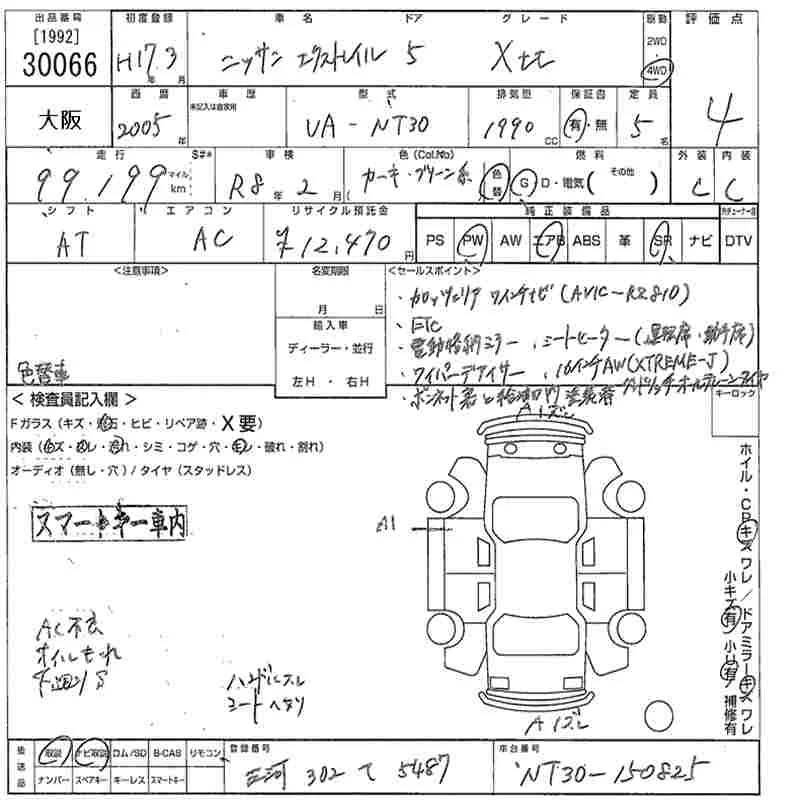 出品番号 初度登録 車名 ドア グレード 駆動 評価点
[1992]
30066 H17.3 年 月 ニッサン エクストレイル 5 Xtt 2WD 4WD
大阪 西暦 車歴 型式 排気量 保証書 定員 4
2005 年 未記入は自家用 UA-NT30 1990 CC 有・無 5 名
走行 S#* 車検 色(Col.No) 燃料 外装 内装
99,199 マイル km R8 年 2 月 カーキ・グリーン系 色替 G・D・電気( その他 ) C C
シフト エアコン リサイクル預託金 純正装備品
AT AC ¥12,470 円 PS PW AW エアB ABS 革 SR ナビ DTV
<注意事項> 名変期限 <セールスポイント>
月 日 ・カロッツェリア ワイドナビ(AVIC-RZ810)
輸入車 ・ETC
ディーラー・並行 ・電動格納ミラー ・シートヒーター(運転席・助手席)
左H・右H ・ワイパーデアイサー ・16インチAW(XTREME-J)
色替車 ・ボンネット裏と給油口内塗装
キーロック
<検査員記入欄> A1ズレ
Fガラス(キズ・飛石・ヒビ・リペア跡・X要)
内装(キズ・汚レ・ スレ・シミ・コゲ・穴・ ・破れ・割れ)
オーディオ(無し・穴)/タイヤ(スタッドレス)
スマートキー車内
A1
ホイル・CPキズワレ/ドアミラーキズワレ
小キズ有 小凹有 補修有
AC不良
オイルもれ
下廻りS
ハンドルスレ
シートヘタリ
A1ズレ
後送品 取説 ナビ取説 ロム/SD B-CAS リモコン 登録番号 車台番号
ナンバー スペアキー キーレス スマートキー 三河 302 て 5487 NT30-150825